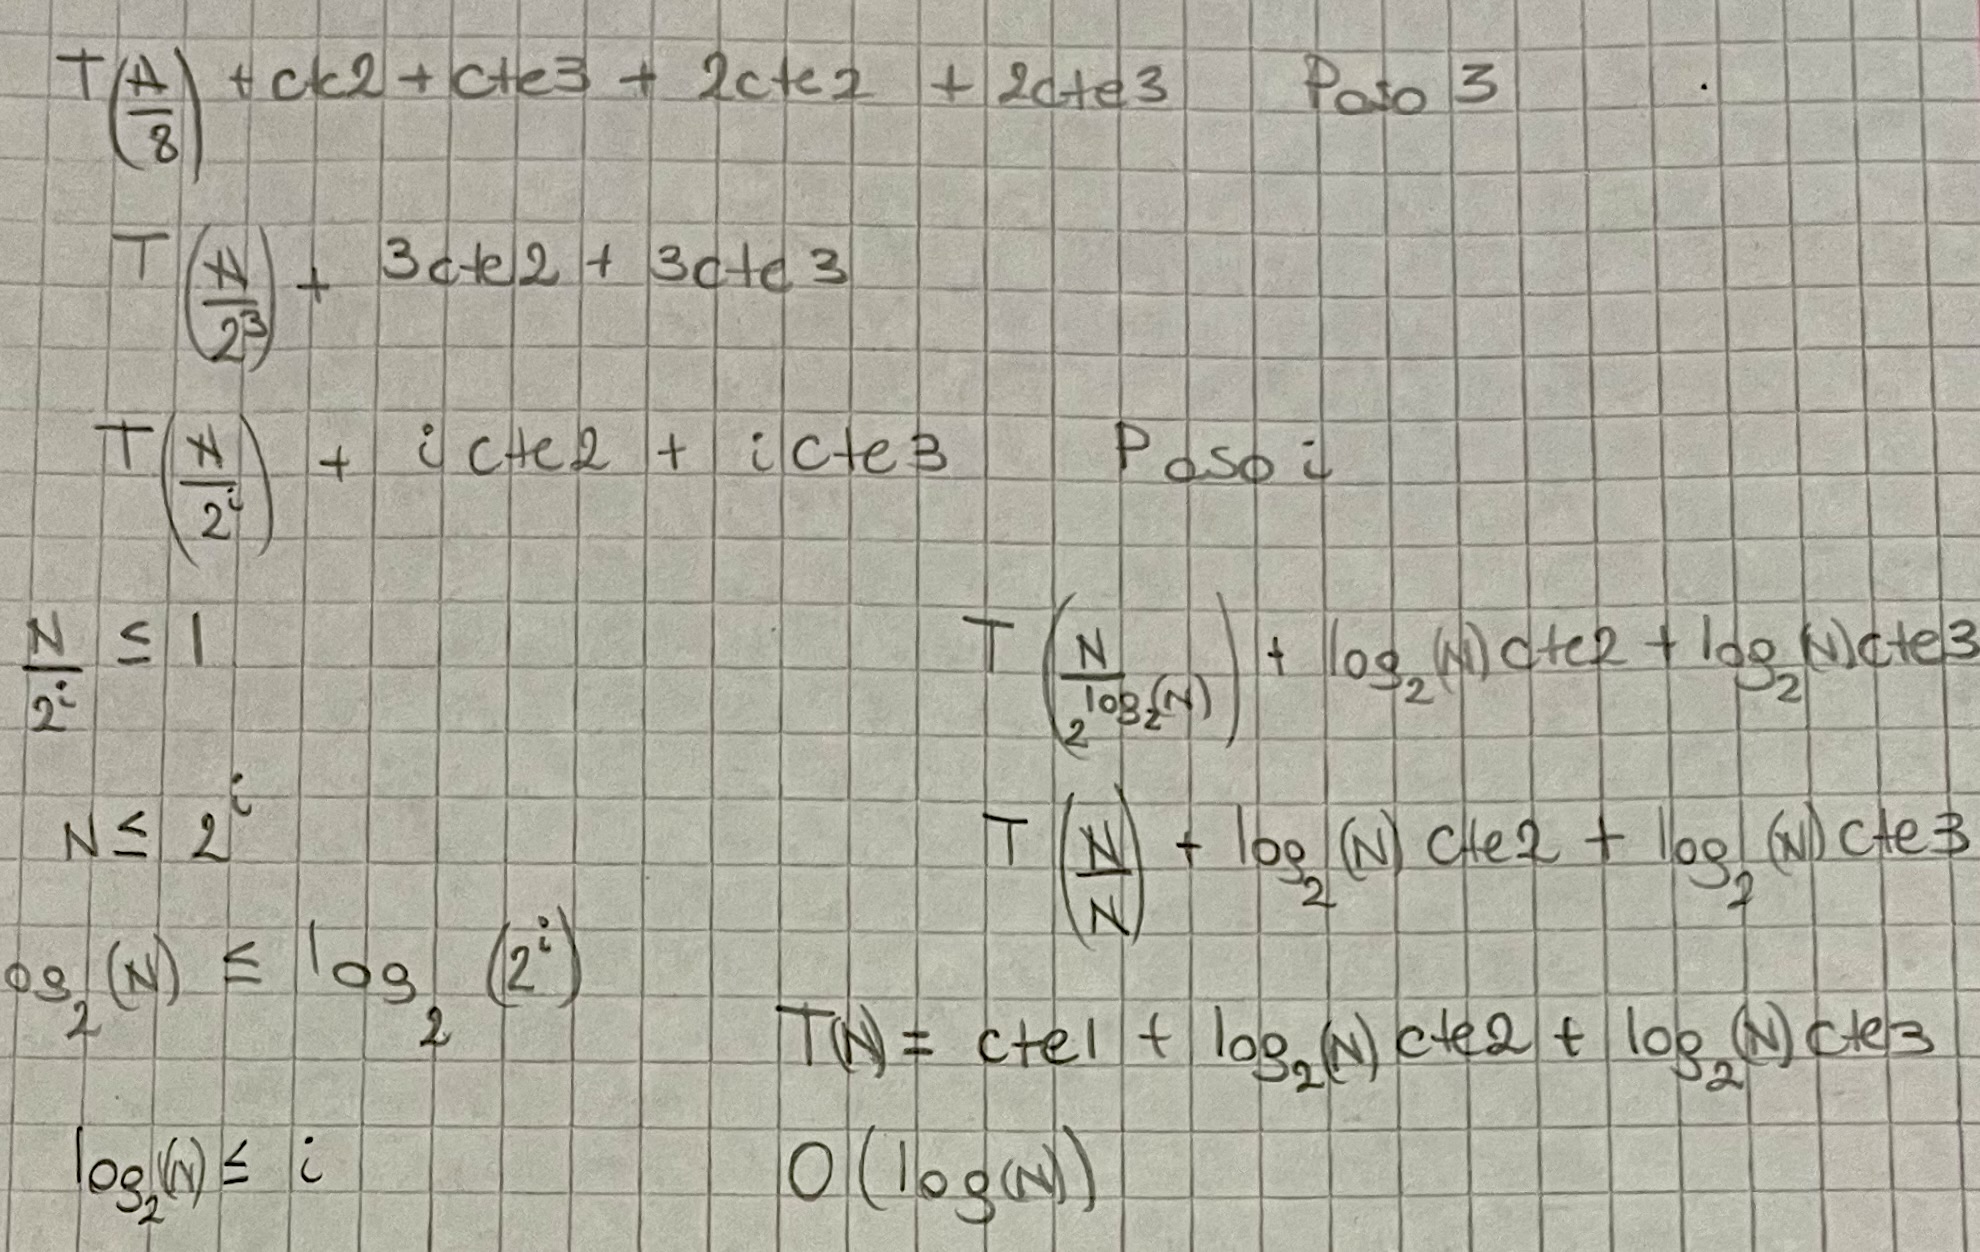 T(N/8) + cte2 + cte3 + 2cte2 + 2cte3 Paso 3
T(N/2^3) + 3cte2 + 3cte3
T(N/2^i) + i cte2 + i cte3 Paso i
N/2^i ≤ 1
N ≤ 2^i
og₂(N) ≤ log₂(2^i)
log₂(N) ≤ i
T(N/2^log₂(N)) + log₂(N)cte2 + log₂(N)cte3
T(N/N) + log₂(N) cte2 + log₂(N) cte3
T(N) = cte1 + log₂(N) cte2 + log₂(N) cte3
O(log(N))